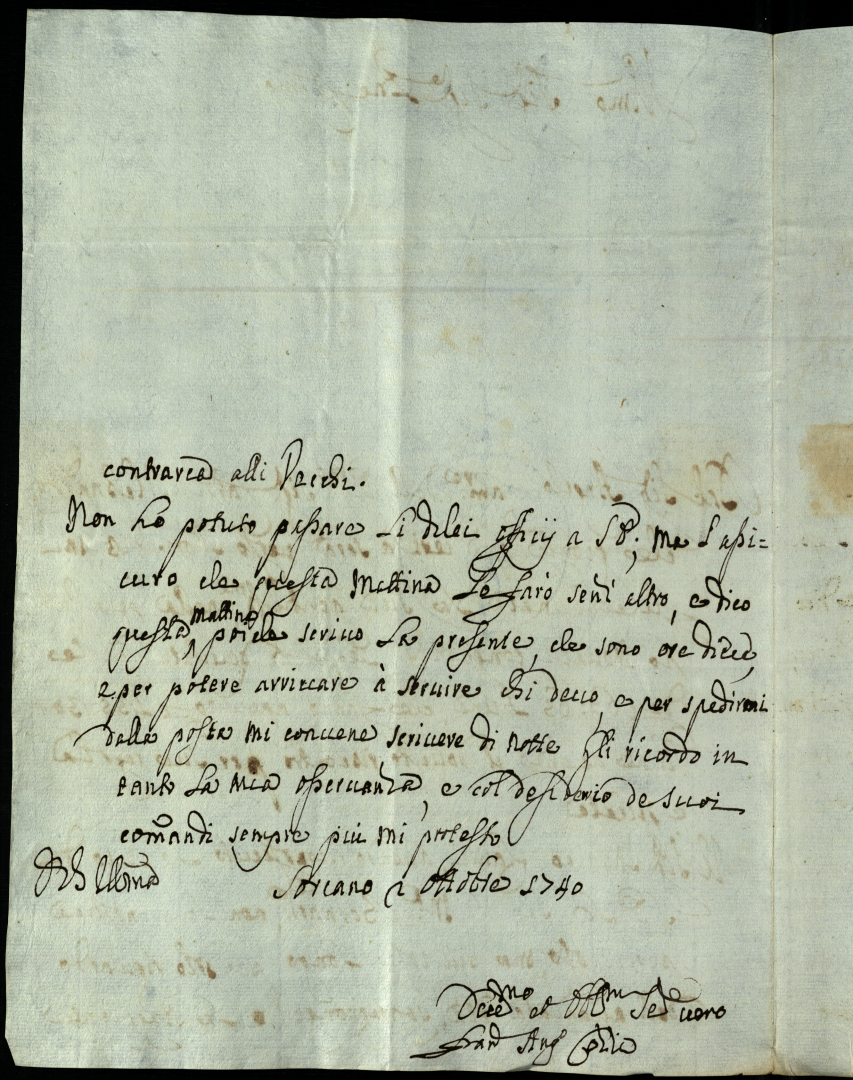 contraria alli Vecchi.
Non ho potuto passare li di lei officij a S.; ma l'assi=
curo che questa Mattina le farò senz'altro, e dico
questa Mattina, poiche scrivo la presente, che sono ore dieci,
e per potere arrivare à servire chi devo, e per spedirmi
dalla posta mi conviene scrivere di notte gli ricordo in
tanto la mia osservanza, e col desiderio de suoi
comandi sempre più mi protesto
Di VS Illma
Sorcano 2 Ottobre 1740
mo et Obb.m Se.e vero
Fran Ang